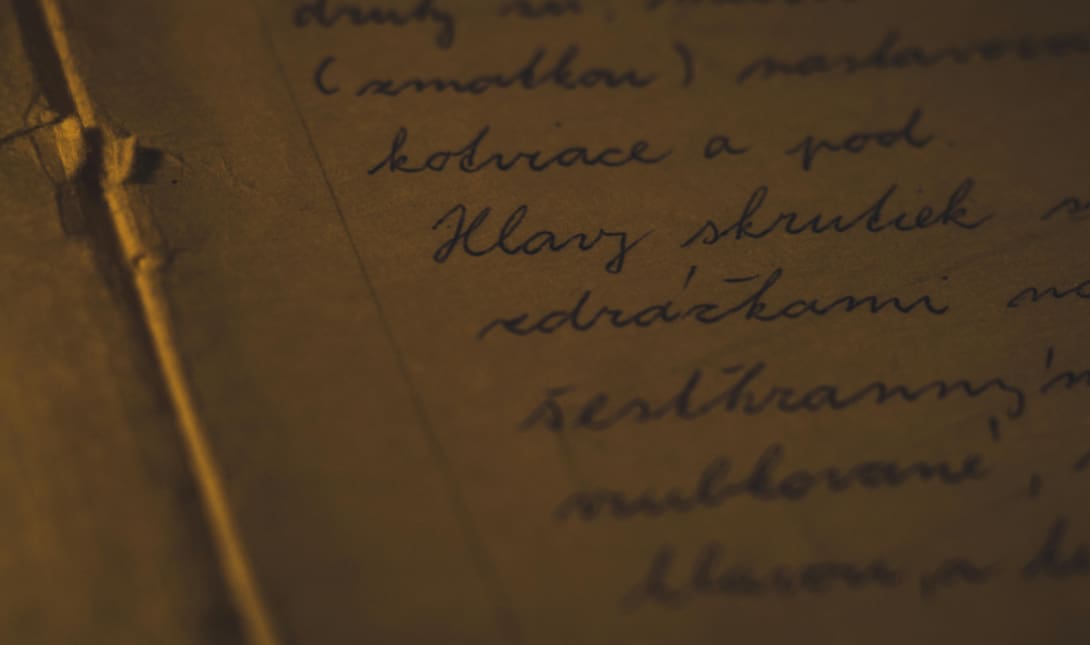 druhy sú,
(zmatkou) nastavova
kotviace a pod.
Hlavy skrutiek s
zdrážkami na
šesťhranným
vrubkované,
hlavou, a